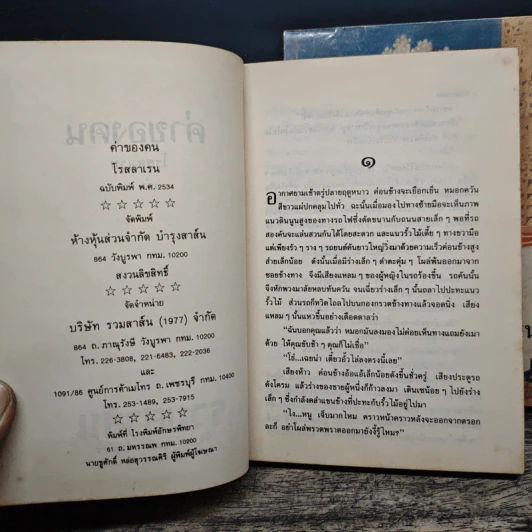 ค่าของคน
โรสลาเรน
ฉบับพิมพ์ พ.ศ. 2534
☆ ☆ ☆ ☆ ☆
จัดพิมพ์
ห้างหุ้นส่วนจำกัด บำรุงสาส์น
864 วังบูรพา กทม. 10200
สงวนลิขสิทธิ์
☆ ☆ ☆ ☆ ☆
จัดจำหน่าย
บริษัท รวมสาส์น (1977) จำกัด
864 ถ.ภาณุรังษี วังบูรพา กทม. 10200
โทร. 226-3808, 221-6483, 222-2036
และ
1091/86 ศูนย์การค้าเมโทร ถ.เพชรบุรี กทม. 10400
โทร. 253-1489, 253-7915
☆ ☆ ☆ ☆ ☆
พิมพ์ที่ โรงพิมพ์อักษรพิทยา
61 ถ.มหรรณพ กทม. 10200
นายชูศักดิ์ หล่อสุวรรณศิริ ผู้พิมพ์ผู้โฆษณา
๑
อากาศยามเช้าตรู่ปลายฤดูหนาว ค่อนข้างจะเยือกเย็น หมอกควัน
สีขาวแผ่ปกคลุมไปทั่ว ฉะนั้นเมื่อมองไปทางซ้ายมือจะเห็นภาพ
แนวดินนูนสูงของทางรถไฟซึ่งตัดขนานกับถนนสายเล็ก ๆ พอที่รถ
สองคันจะแล่นสวนกันได้โดยสะดวก และแนวรั้วไม้เตี้ย ๆ ทางขวามือ
แต่เพียงรัว ๆ ราง ๆ รถยนต์คันยาวใหญ่วิ่งมาด้วยความเร็วค่อนข้างสูง
ส่ายเล็กน้อย ดังนั้นเมื่อมีร่างเล็ก ๆ ดำตะคุ่ม ๆ โผล่พ้นออกมาจาก
ซอยข้างทาง จึงมีเสียงแหลม ๆ ของผู้หญิงในรถร้องขึ้น รถคันนั้น
จึงหักพวงมาลัยหลบทันควัน จนเฉี่ยวร่างเล็ก ๆ นั้นถลาไปปะทะแนว
รั้วไม้ ส่วนรถก็หวิดไถลไปบนกองกรวดข้างทางแล้วจอดนิ่ง เสียง
แหลม ๆ นั้นแหวขึ้นอย่างเดือดดาลว่า
“ฉันบอกคุณแล้วว่า หมอกมันลงมองไม่ค่อยเห็นทางแถมยังเมา
ด้วย ให้คุณขับช้า ๆ คุณก็ไม่เชื่อ”
“โธ่...เฉยน่า เดี๋ยวอั๊วไล่ลงตรงนี้เลย”
เสียงห้าว ค่อนข้างอ้อแอ้เล็กน้อยดังขึ้นชั่วครู่ เสียงประตูรถ
ดังโครม แล้วร่างของชายผู้หนึ่งก็ก้าวลงมา เดินเซน้อย ๆ ไปยังร่าง
เล็ก ๆ ซึ่งกำลังคลำแขนข้างที่ปะทะกับรั้วไม้อยู่ไปมา
“ไง...หนู เจ็บมากไหม คราวหน้าคราวหลังจะออกจากตรอก
ละก็ อย่าโผล่พรวดพราดออกมายังงี้รู้ไหม?”